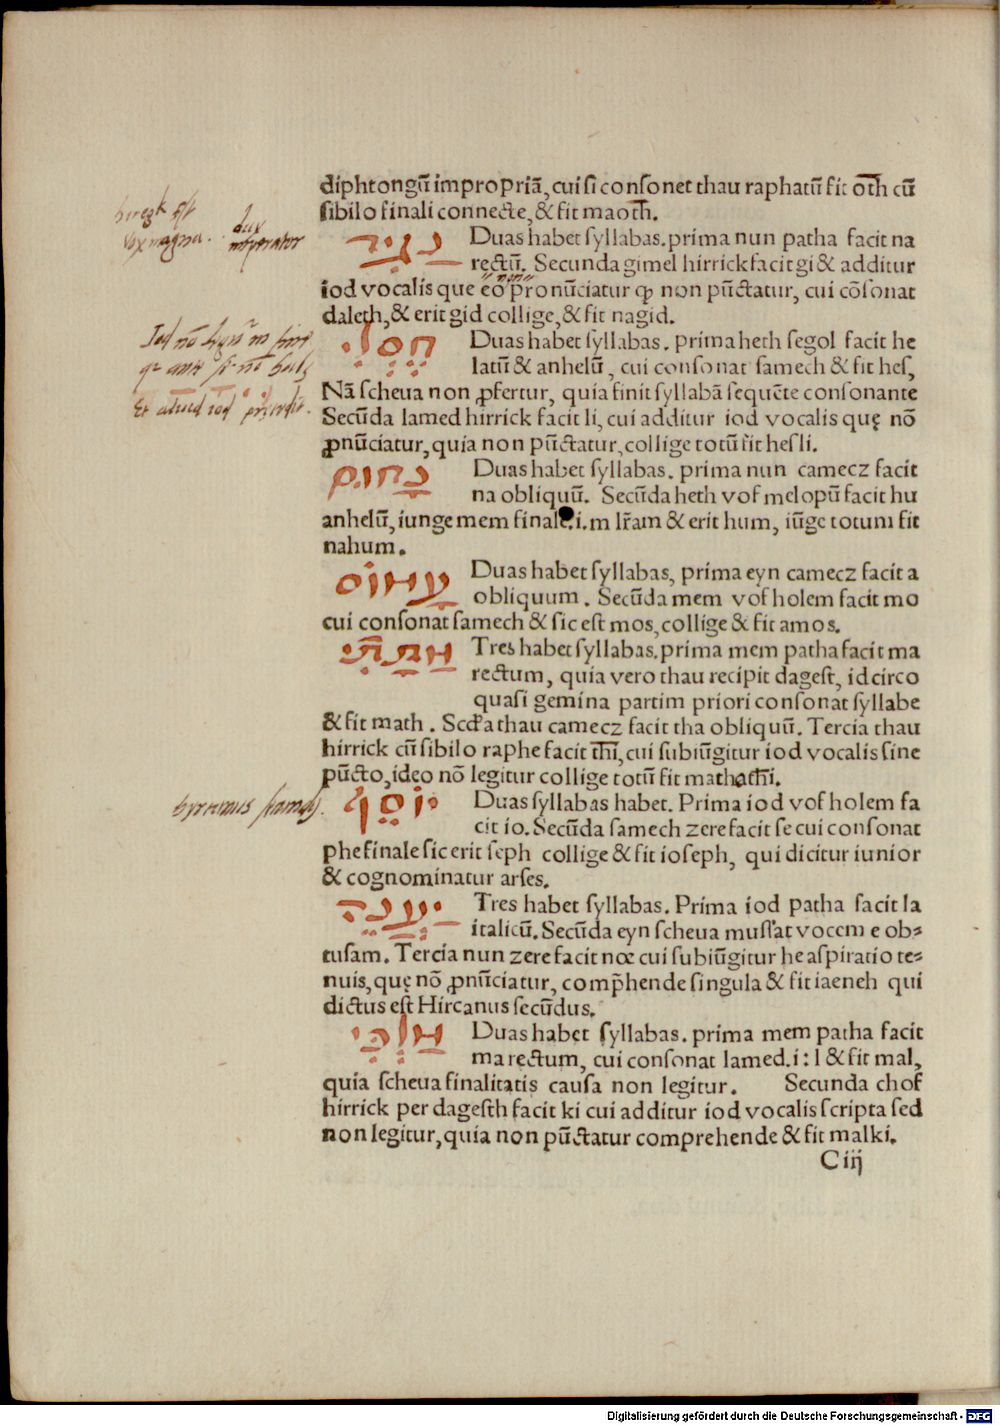 diphtongū impropriā, cui si consonet thau raphatū fit oth cū
sibilo finali connecte, & fit maoth.
נַגִיד Duas habet syllabas. prima nun patha facit na
rectū. Secunda gimel hirrick facit gi & additur
iod vocalis que eo pronūciatur ꝙ non pūctatur, cui cōsonat
daleth, & erit gid collige, & fit nagid.
חֶסְלִי Duas habet syllabas. prima heth segol facit he
latū & anhelū, cui consonat samech & fit hes,
Nā scheua non ꝓfertur, quia finit syllabā sequēte consonante
Secūda lamed hirrick facit li, cui additur iod vocalis quę nō
ꝓnūciatur, quia non pūctatur, collige totū fit hesli.
נָחוּם Duas habet syllabas. prima nun camecz facit
na obliquū. Secūda heth vof melopū facit hu
anhelū, iunge mem finale.i.m lr̄am & erit hum, iūge totum fit
nahum.
עָמוֹס Duas habet syllabas, prima eyn camecz facit a
obliquum. Secūda mem vof holem facit mo
cui consonat samech & sic est mos, collige & fit amos.
מַתָּתִי Tres habet syllabas. prima mem patha facit ma
rectum, quia vero thau recipit dagest, idcirco
quasi gemina partim priori consonat syllabe
& fit math. Scd̄a thau camecz facit tha obliquū. Tercia thau
hirrick cū sibilo raphe facit thi, cui subiūgitur iod vocalis sine
pūcto, ideo nō legitur collige totū fit mathathi.
יוֹסֵף Duas syllabas habet. Prima iod vof holem fa
cit io. Secūda samech zere facit se cui consonat
phe finale sic erit seph collige & fit ioseph, qui dicitur iunior
& cognominatur arses.
יַעְנֵה Tres habet syllabas. Prima iod patha facit Ia
italicū. Secūda eyn scheua mussat vocem e ob⸗
tusam. Tercia nun zere facit nœ cui subiūgitur he aspiratio te⸗
nuis, quę nō ꝓnūciatur, comp̄hende singula & fit iaeneh qui
dictus est Hircanus secūdus.
מַלְכִּי Duas habet syllabas. prima mem patha facit
ma rectum, cui consonat lamed.i:l & fit mal,
quia scheua finalitatis causa non legitur. Secunda chof
hirrick per dagesth facit ki cui additur iod vocalis scripta sed
non legitur, quia non pūctatur comprehende & fit malki.
C iij
dux
imperator
Digitalisierung gefördert durch die Deutsche Forschungsgemeinschaft - DFG